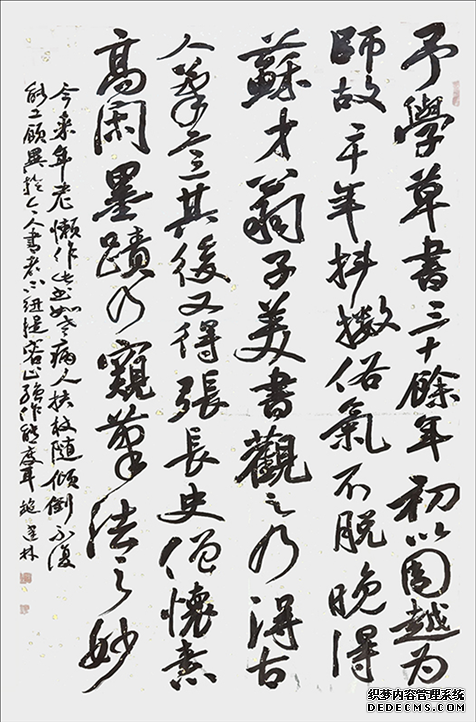 予學草書三十餘年初以周越為
師故二十年抖擻俗氣不脫晚得
蘇才翁子美書觀之乃得古
人筆意其後又得張長史僧懷素
高閑墨蹟乃窺筆法之妙
今来年老懶作此書如老病人扶杖隨傾倒不復
能工顧異於今人書者不紐提容止強作態度耳 林
织梦内容管理系统
DEDECMS.COM